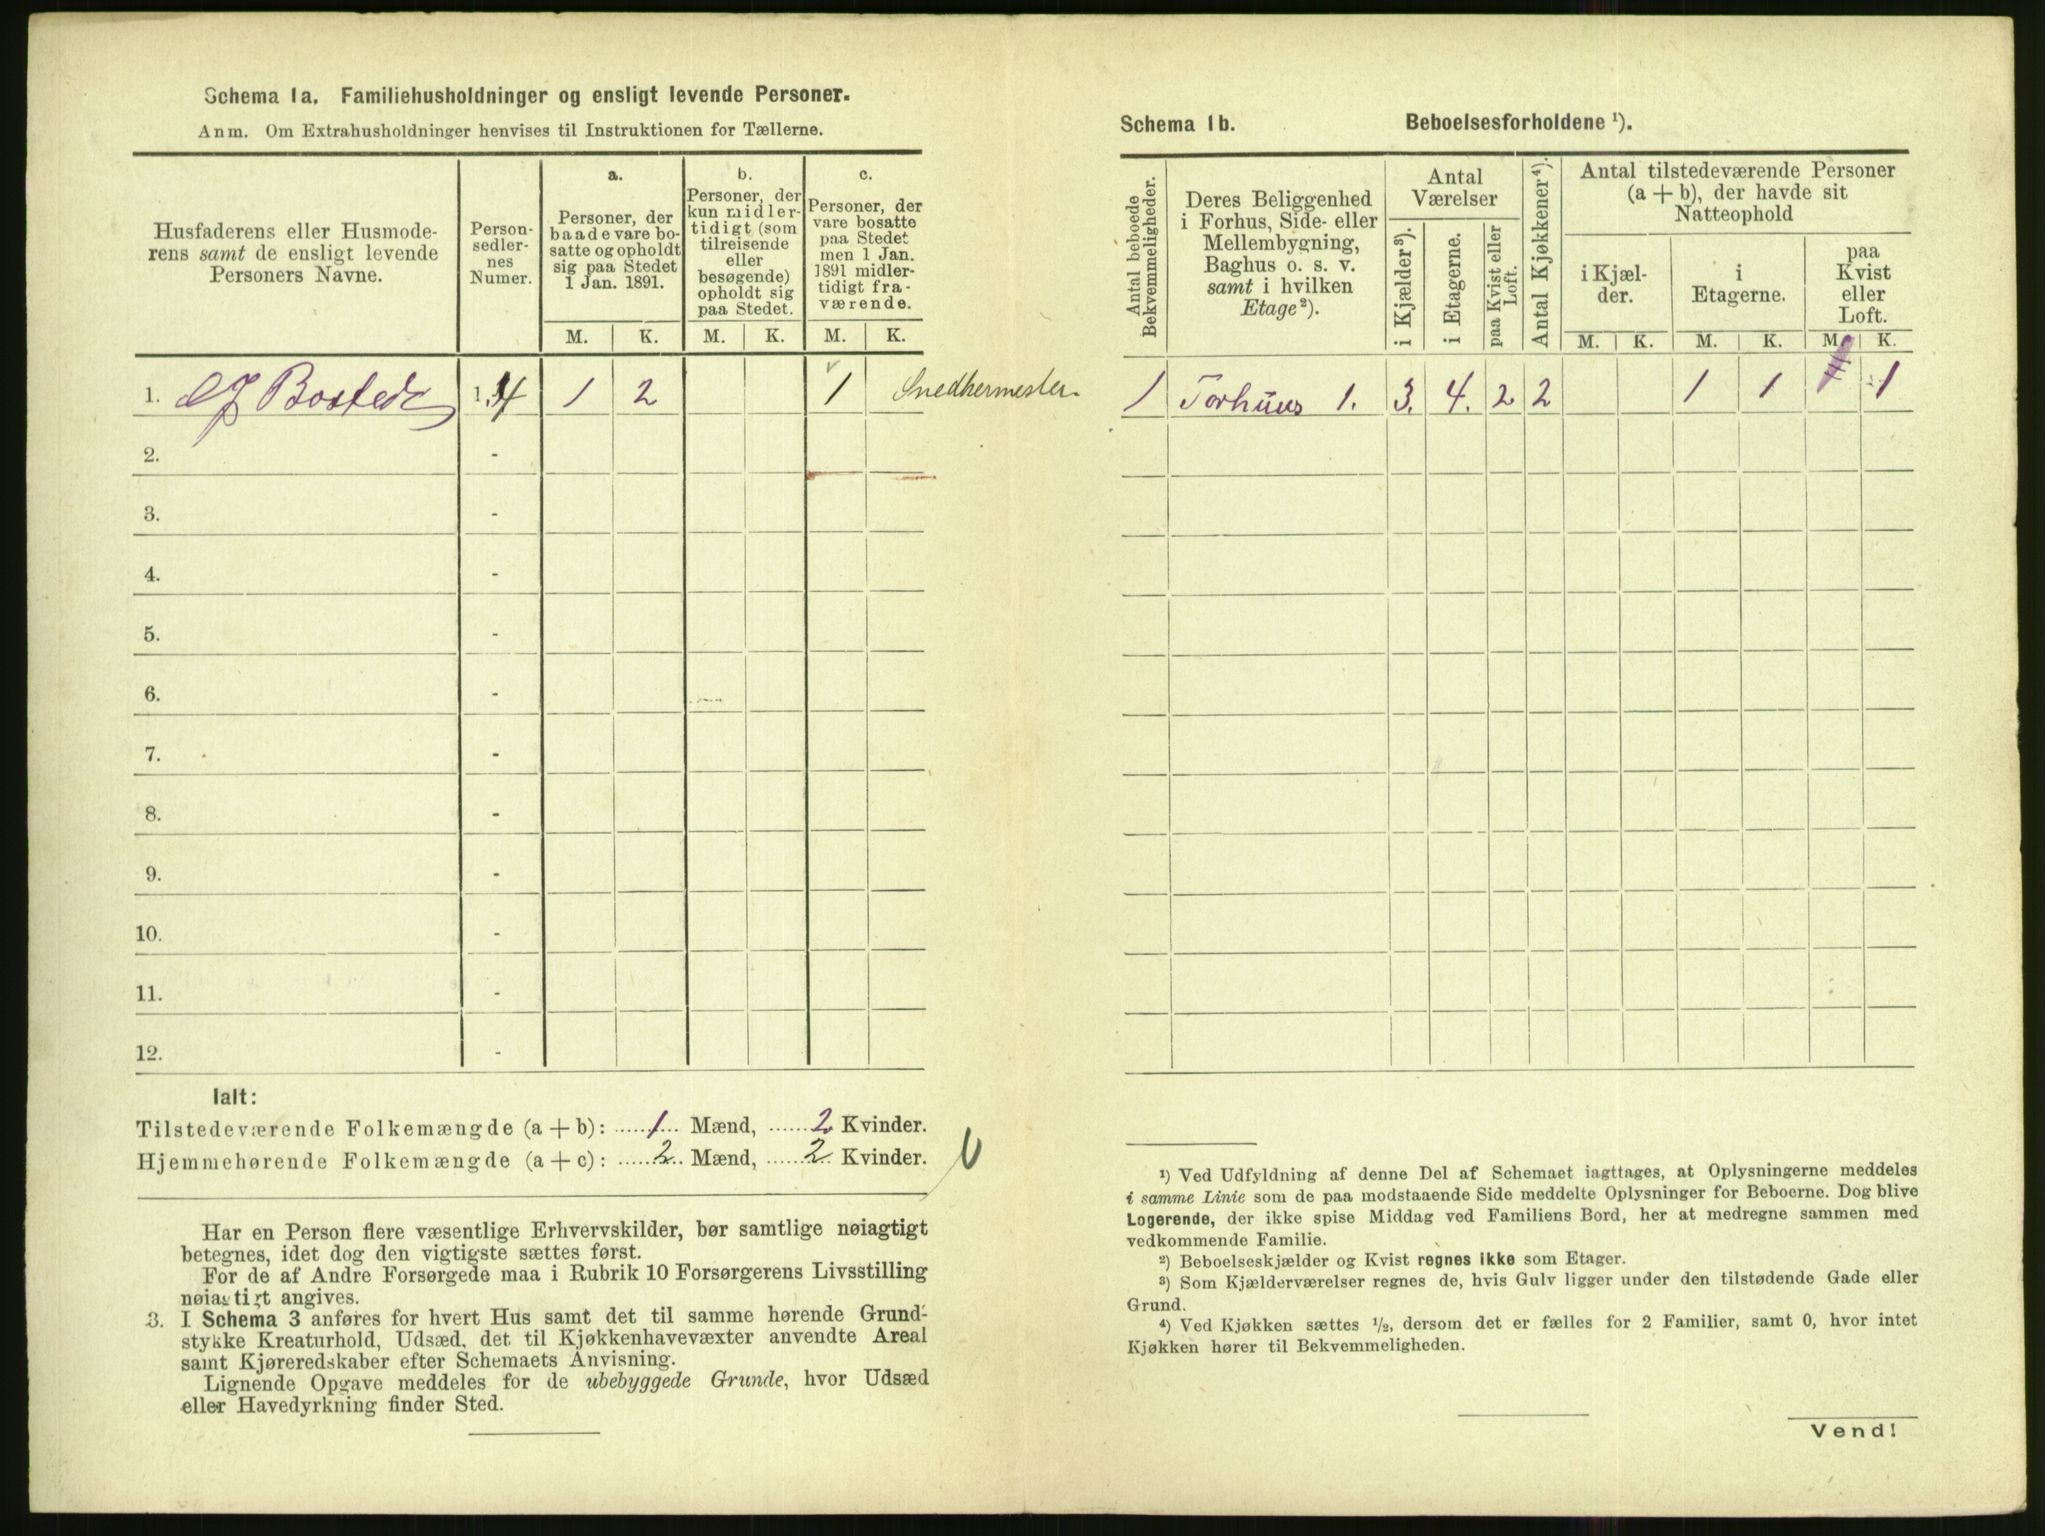 Schema 1a. Familiehusholdninger og ensligt levende Personer.
Anm. Om Extrahusholdninger henvises til Instruktionen for Tællerne.
Husfaderens eller Husmode-
rens samt de ensligt levende
Personers Navne.
Person-
sedler-
nes
Numer.
a.
Personer, der
baade vare bo-
satte og opholdt
sig paa Stedet
1 Jan. 1891.
b.
Personer, der
kun midler-
tidigt (som
tilreisende
eller
besøgende)
opholdt sig
paa Stedet.
c.
Personer, der
vare bosatte
paa Stedet
men 1 Jan.
1891 midler-
tidigt fra-
værende.
M. K. M. K. M. K.
1. Bostede 1 2 1 Snedkermester
2. -
3. -
4. -
5. -
6. -
7. -
8. -
9. -
10. -
11. -
12. -
Ialt:
Tilstedeværende Folkemængde (a + b): 1 Mænd, 2 Kvinder.
Hjemmehørende Folkemængde (a + c): 2 Mænd, 2 Kvinder.
Har en Person flere væsentlige Erhvervskilder, bør samtlige nøiagtigt
betegnes, idet dog den vigtigste sættes først.
For de af Andre Forsørgede maa i Rubrik 10 Forsørgerens Livsstilling
nøiagtigt angives.
3. I Schema 3 anføres for hvert Hus samt det til samme hørende Grund-
stykke Kreaturhold, Udsæd, det til Kjøkkenhavevæxter anvendte Areal
samt Kjøreredskaber efter Schemaets Anvisning.
Lignende Opgave meddeles for de ubebyggede Grunde, hvor Udsæd
eller Havedyrkning finder Sted.
Schema 1b. Beboelsesforholdene ¹).
Antal beboede
Bekvemmeligheder.
Deres Beliggenhed
i Forhus, Side- eller
Mellembygning,
Baghus o. s. v.
samt i hvilken
Etage²).
Antal
Værelser
i Kjælder³).
i Etagerne.
paa Kvist eller
Loft.
Antal Kjøkkener⁴).
Antal tilstedeværende Personer
(a + b), der havde sit
Natteophold
i Kjæl-
der.
i
Etagerne.
paa
Kvist
eller
Loft.
M. K. M. K. M. K.
1 Forhuus 1. 3. 4. 2 2 1 1 1
¹) Ved Udfyldning af denne Del af Schemaet iagttages, at Oplysningerne meddeles
i samme Linie som de paa modstaaende Side meddelte Oplysninger for Beboerne. Dog blive
Logerende, der ikke spise Middag ved Familiens Bord, her at medregne sammen med
vedkommende Familie.
²) Beboelseskjælder og Kvist regnes ikke som Etager.
³) Som Kjælderværelser regnes de, hvis Gulv ligger under den tilstødende Gade eller
Grund.
⁴) Ved Kjøkken sættes ¹/₂, dersom det er fælles for 2 Familier, samt 0, hvor intet
Kjøkken hører til Bekvemmeligheden.
Vend!